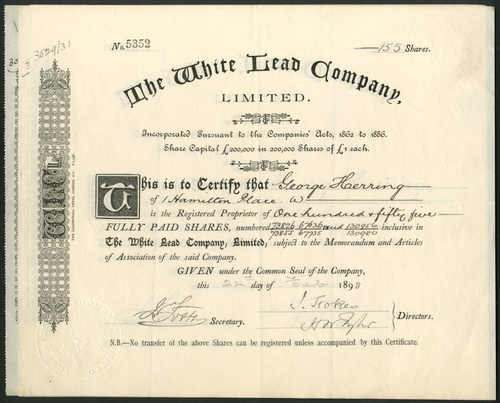 3024/31
No. 5352
155 Shares.
The White Lead Company,
LIMITED.
Incorporated Pursuant to the Companies' Acts, 1862 to 1886.
Share Capital £200,000 in 200,000 Shares of £1 each.
This is to Certify that George Herring
of 1 Hamilton Place W
is the Registered Proprietor of One hundred & fifty five
FULLY PAID SHARES, numbered 73826/73855 67636/67735 and 130956/130980 inclusive in
The White Lead Company, Limited, subject to the Memorandum and Articles
of Association of the said Company.
GIVEN under the Common Seal of the Company,
this 22nd day of Feb 1893
Secretary.
J. Stokes
Directors.
N.B.—No transfer of the above Shares can be registered unless accompanied by this Certificate.